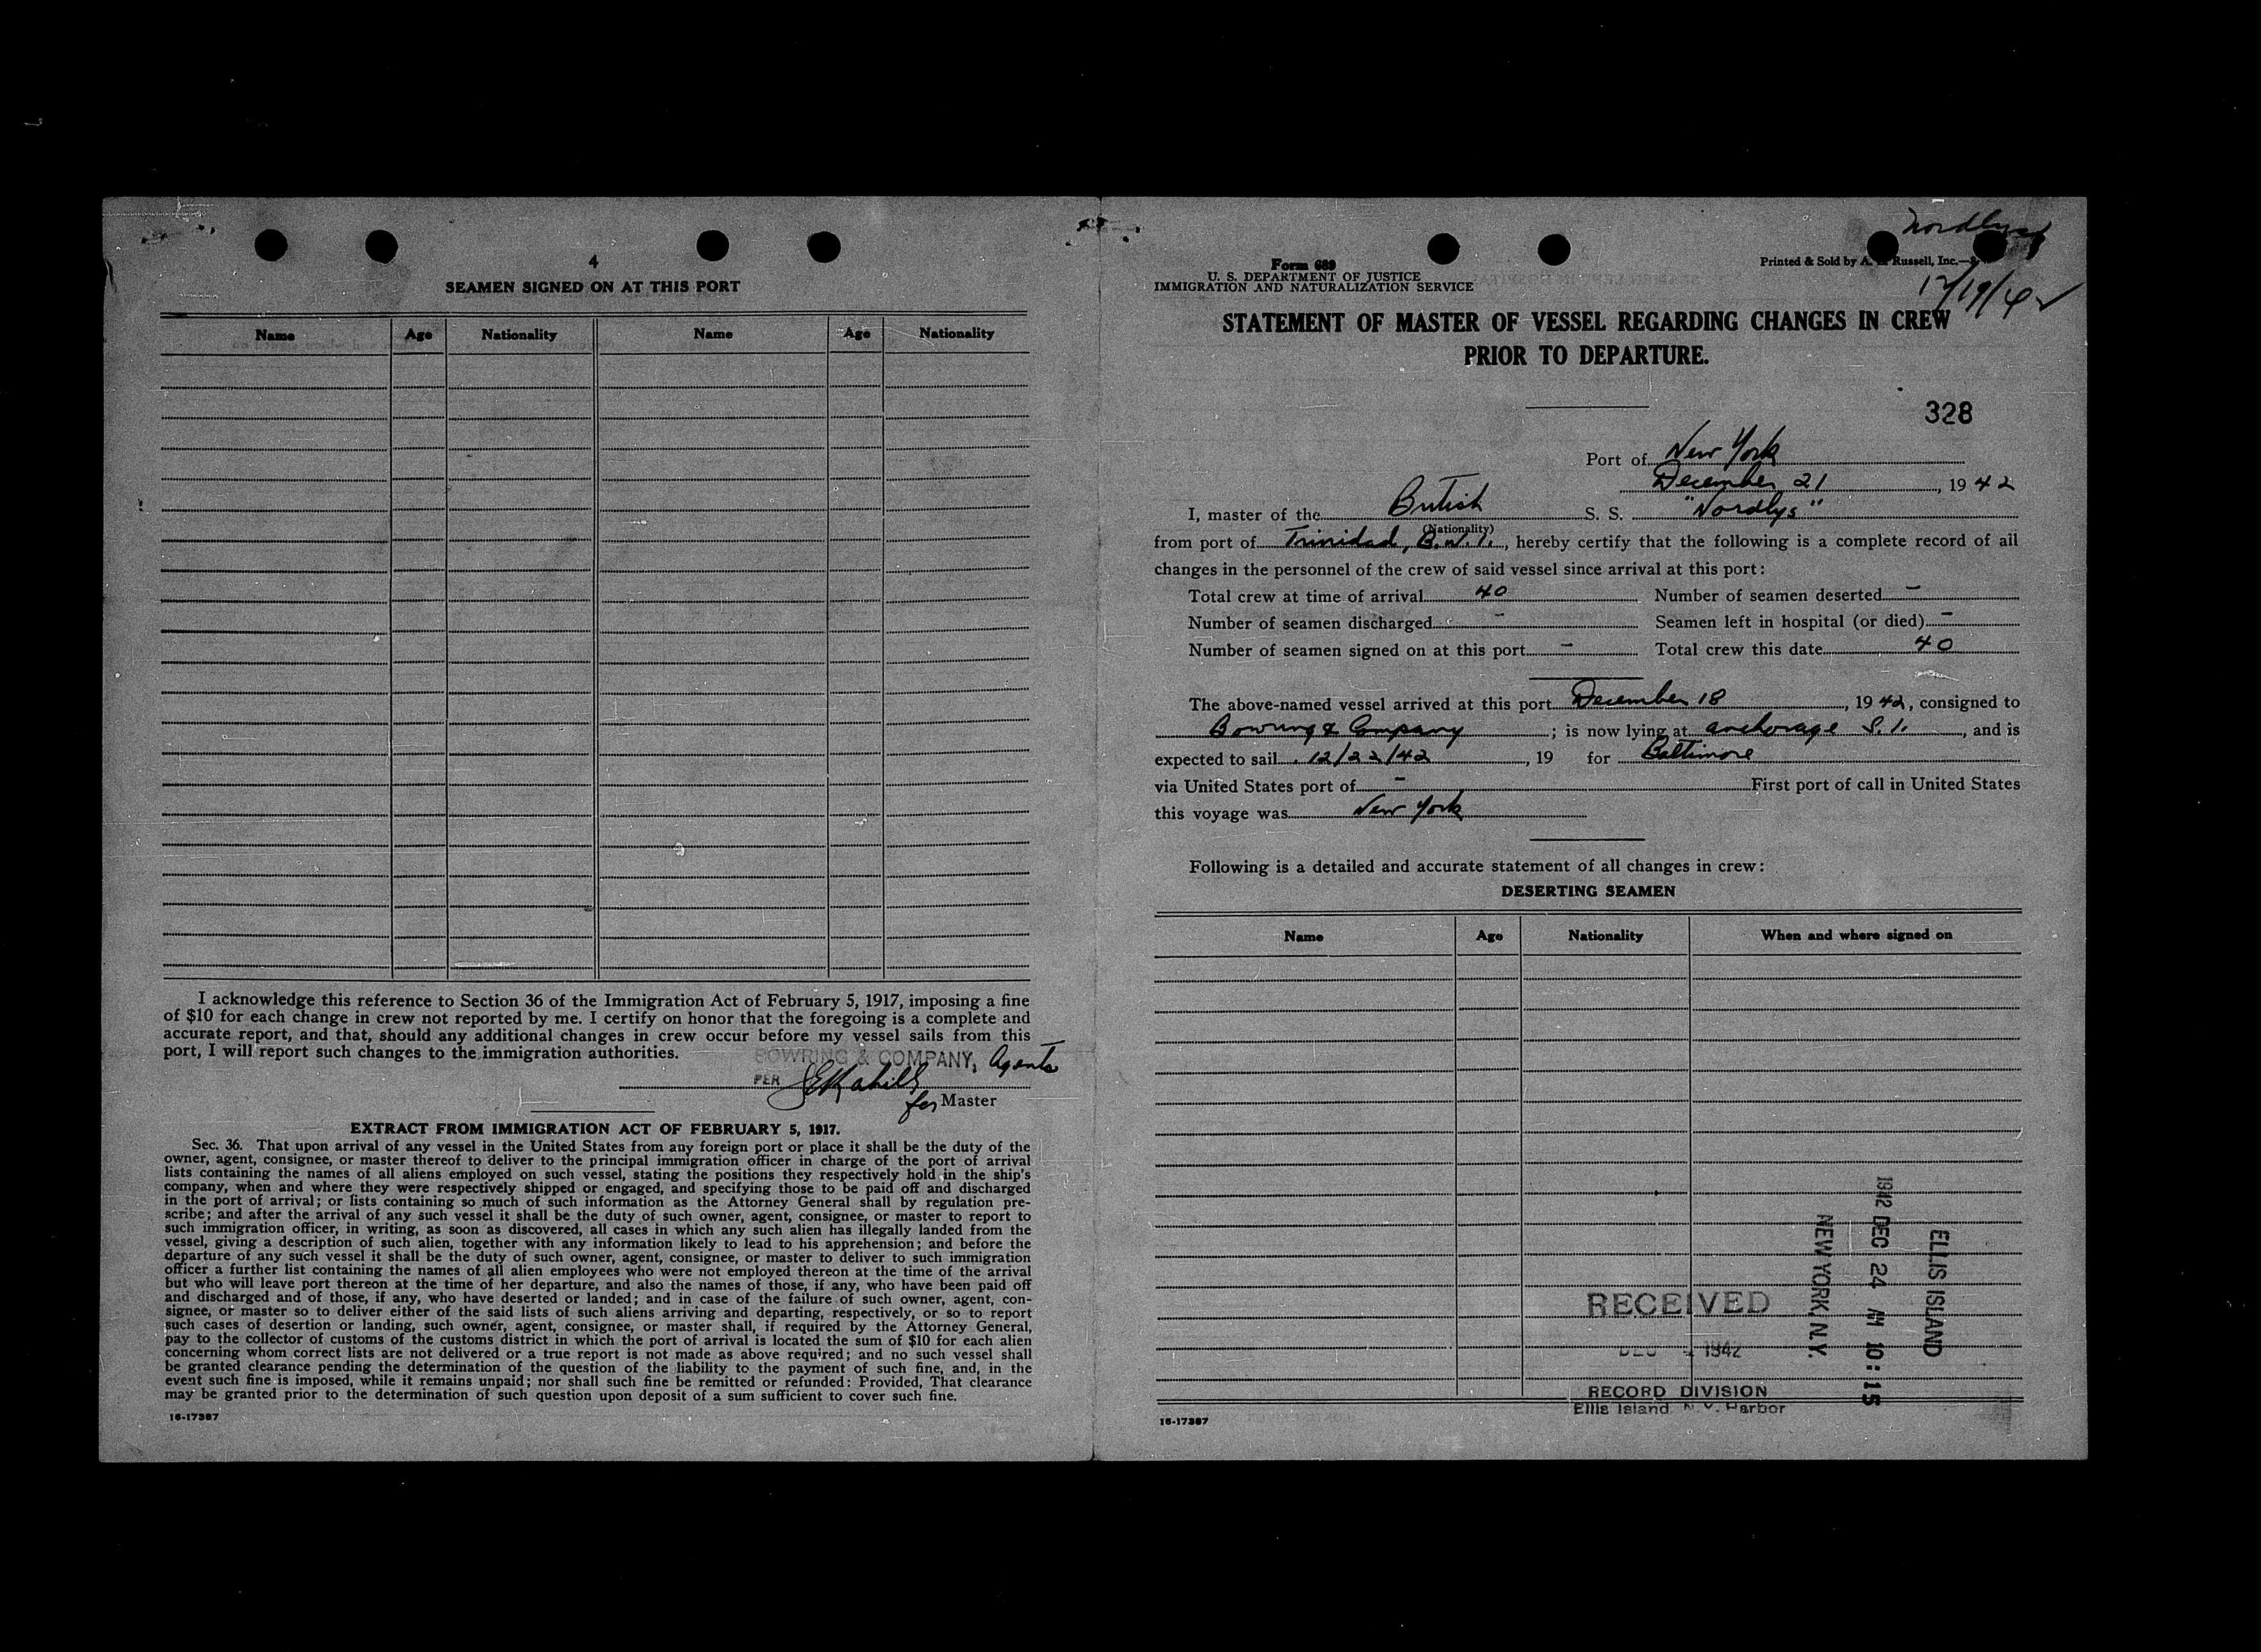 4
SEAMEN SIGNED ON AT THIS PORT
Name Age Nationality Name Age Nationality
I acknowledge this reference to Section 36 of the Immigration Act of February 5, 1917, imposing a fine
of $10 for each change in crew not reported by me. I certify on honor that the foregoing is a complete and
accurate report, and that, should any additional changes in crew occur before my vessel sails from this
port, I will report such changes to the immigration authorities.
BOWRING & COMPANY, Agents
PER
for Master
EXTRACT FROM IMMIGRATION ACT OF FEBRUARY 5, 1917.
Sec. 36. That upon arrival of any vessel in the United States from any foreign port or place it shall be the duty of the
owner, agent, consignee, or master thereof to deliver to the principal immigration officer in charge of the port of arrival
lists containing the names of all aliens employed on such vessel, stating the positions they respectively hold in the ship's
company, when and where they were respectively shipped or engaged, and specifying those to be paid off and discharged
in the port of arrival; or lists containing so much of such information as the Attorney General shall by regulation pre-
scribe; and after the arrival of any such vessel it shall be the duty of such owner, agent, consignee, or master to report to
such immigration officer, in writing, as soon as discovered, all cases in which any such alien has illegally landed from the
vessel, giving a description of such alien, together with any information likely to lead to his apprehension; and before the
departure of any such vessel it shall be the duty of such owner, agent, consignee, or master to deliver to such immigration
officer a further list containing the names of all alien employees who were not employed thereon at the time of the arrival
but who will leave port thereon at the time of her departure, and also the names of those, if any, who have been paid off
and discharged and of those, if any, who have deserted or landed; and in case of the failure of such owner, agent, con-
signee, or master so to deliver either of the said lists of such aliens arriving and departing, respectively, or so to report
such cases of desertion or landing, such owner, agent, consignee, or master shall, if required by the Attorney General,
pay to the collector of customs of the customs district in which the port of arrival is located the sum of $10 for each alien
concerning whom correct lists are not delivered or a true report is not made as above required; and no such vessel shall
be granted clearance pending the determination of the question of the liability to the payment of such fine, and, in the
event such fine is imposed, while it remains unpaid; nor shall such fine be remitted or refunded: Provided, That clearance
may be granted prior to the determination of such question upon deposit of a sum sufficient to cover such fine.
16-17387
Nordlys
Form 689
Printed & Sold by A. Russell, Inc.
U. S. DEPARTMENT OF JUSTICE
IMMIGRATION AND NATURALIZATION SERVICE
12/19/42
STATEMENT OF MASTER OF VESSEL REGARDING CHANGES IN CREW
PRIOR TO DEPARTURE.
328
Port of New York
December 21, 1942
I, master of the British S. S. "Nordlys"
(Nationality)
from port of Trinidad, B.W.I., hereby certify that the following is a complete record of all
changes in the personnel of the crew of said vessel since arrival at this port:
Total crew at time of arrival 40 Number of seamen deserted -
Number of seamen discharged - Seamen left in hospital (or died) -
Number of seamen signed on at this port - Total crew this date 40
The above-named vessel arrived at this port December 18, 1942, consigned to
Bowring & Company; is now lying at anchorage S.I., and is
expected to sail 12/22/42, 19 for Baltimore
via United States port of - First port of call in United States
this voyage was New York
Following is a detailed and accurate statement of all changes in crew:
DESERTING SEAMEN
Name Age Nationality When and where signed on
ELLIS ISLAND
1942 DEC 24 AM 10:15
NEW YORK, N.Y.
RECEIVED
DEC 1942
RECORD DIVISION
Ellis Island N. Y. Harbor
16-17387